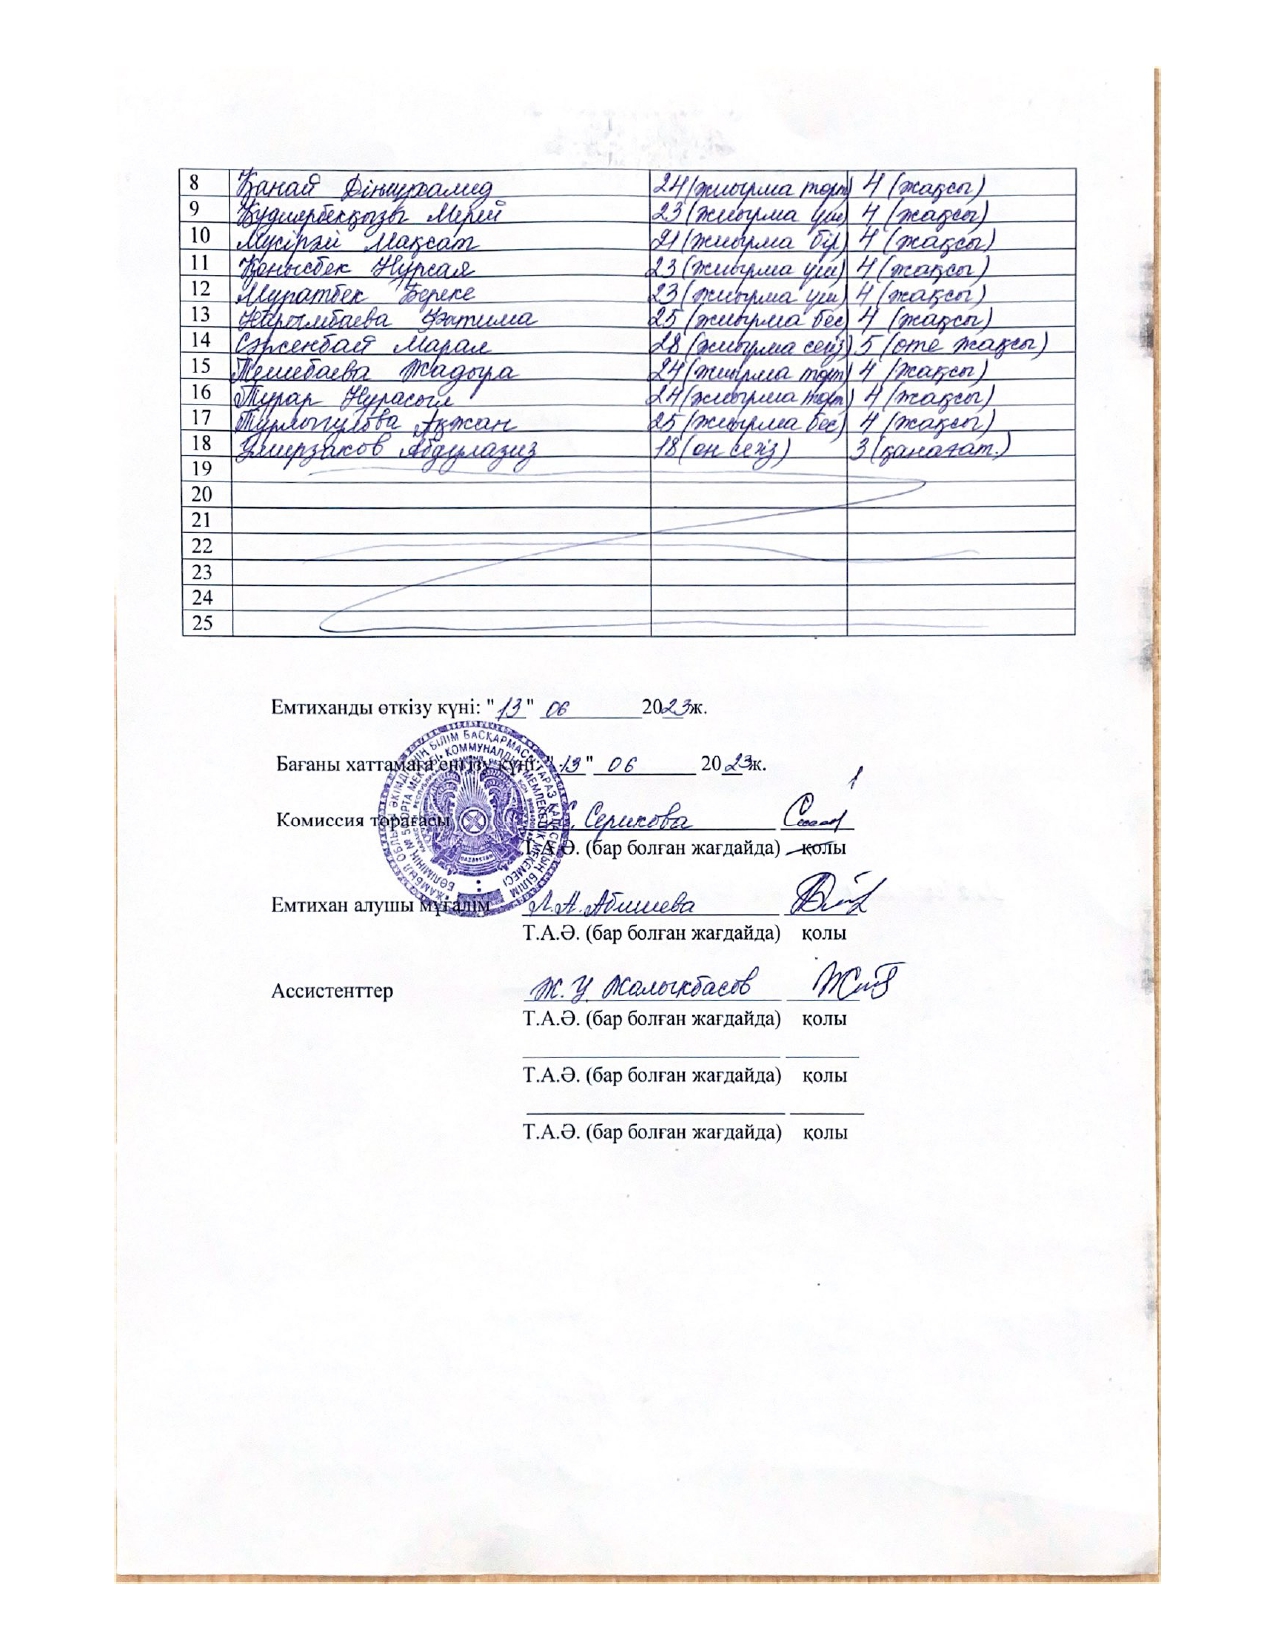 8 Қанай Дінмухамед 24 (жиырма төрт) 4 (жақсы)
9 Құдиярбекқызы Мерей 23 (жиырма үш) 4 (жақсы)
10 Мүсірәлі Мақсат 21 (жиырма бір) 4 (жақсы)
11 Қонысбек Нұрсая 23 (жиырма үш) 4 (жақсы)
12 Мұратбек Береке 23 (жиырма үш) 4 (жақсы)
13 Нарымбаева Фатима 25 (жиырма бес) 4 (жақсы)
14 Сәрсенбай Марал 28 (жиырма сегіз) 5 (өте жақсы)
15 Тешебаева Жадыра 24 (жиырма төрт) 4 (жақсы)
16 Тұрар Нұрасыл 24 (жиырма төрт) 4 (жақсы)
17 Тұрлығулова Ақжан 25 (жиырма бес) 4 (жақсы)
18 Үмирзаков Абдулазиз 18 (он сегіз) 3 (қанағат.)
19
20
21
22
23
24
25
Емтиханды өткізу күні: "13" 06 2023ж.
Бағаны хаттамаға енгізу күні: "13" 06 2023ж.
Комиссия төрағасы Серикова
Т.А.Ә. (бар болған жағдайда) қолы
Емтихан алушы мұғалім Л.А. Абишева
Т.А.Ә. (бар болған жағдайда) қолы
Ассистенттер Ж.У. Жалыкбасов
Т.А.Ә. (бар болған жағдайда) қолы
Т.А.Ә. (бар болған жағдайда) қолы
Т.А.Ә. (бар болған жағдайда) қолы